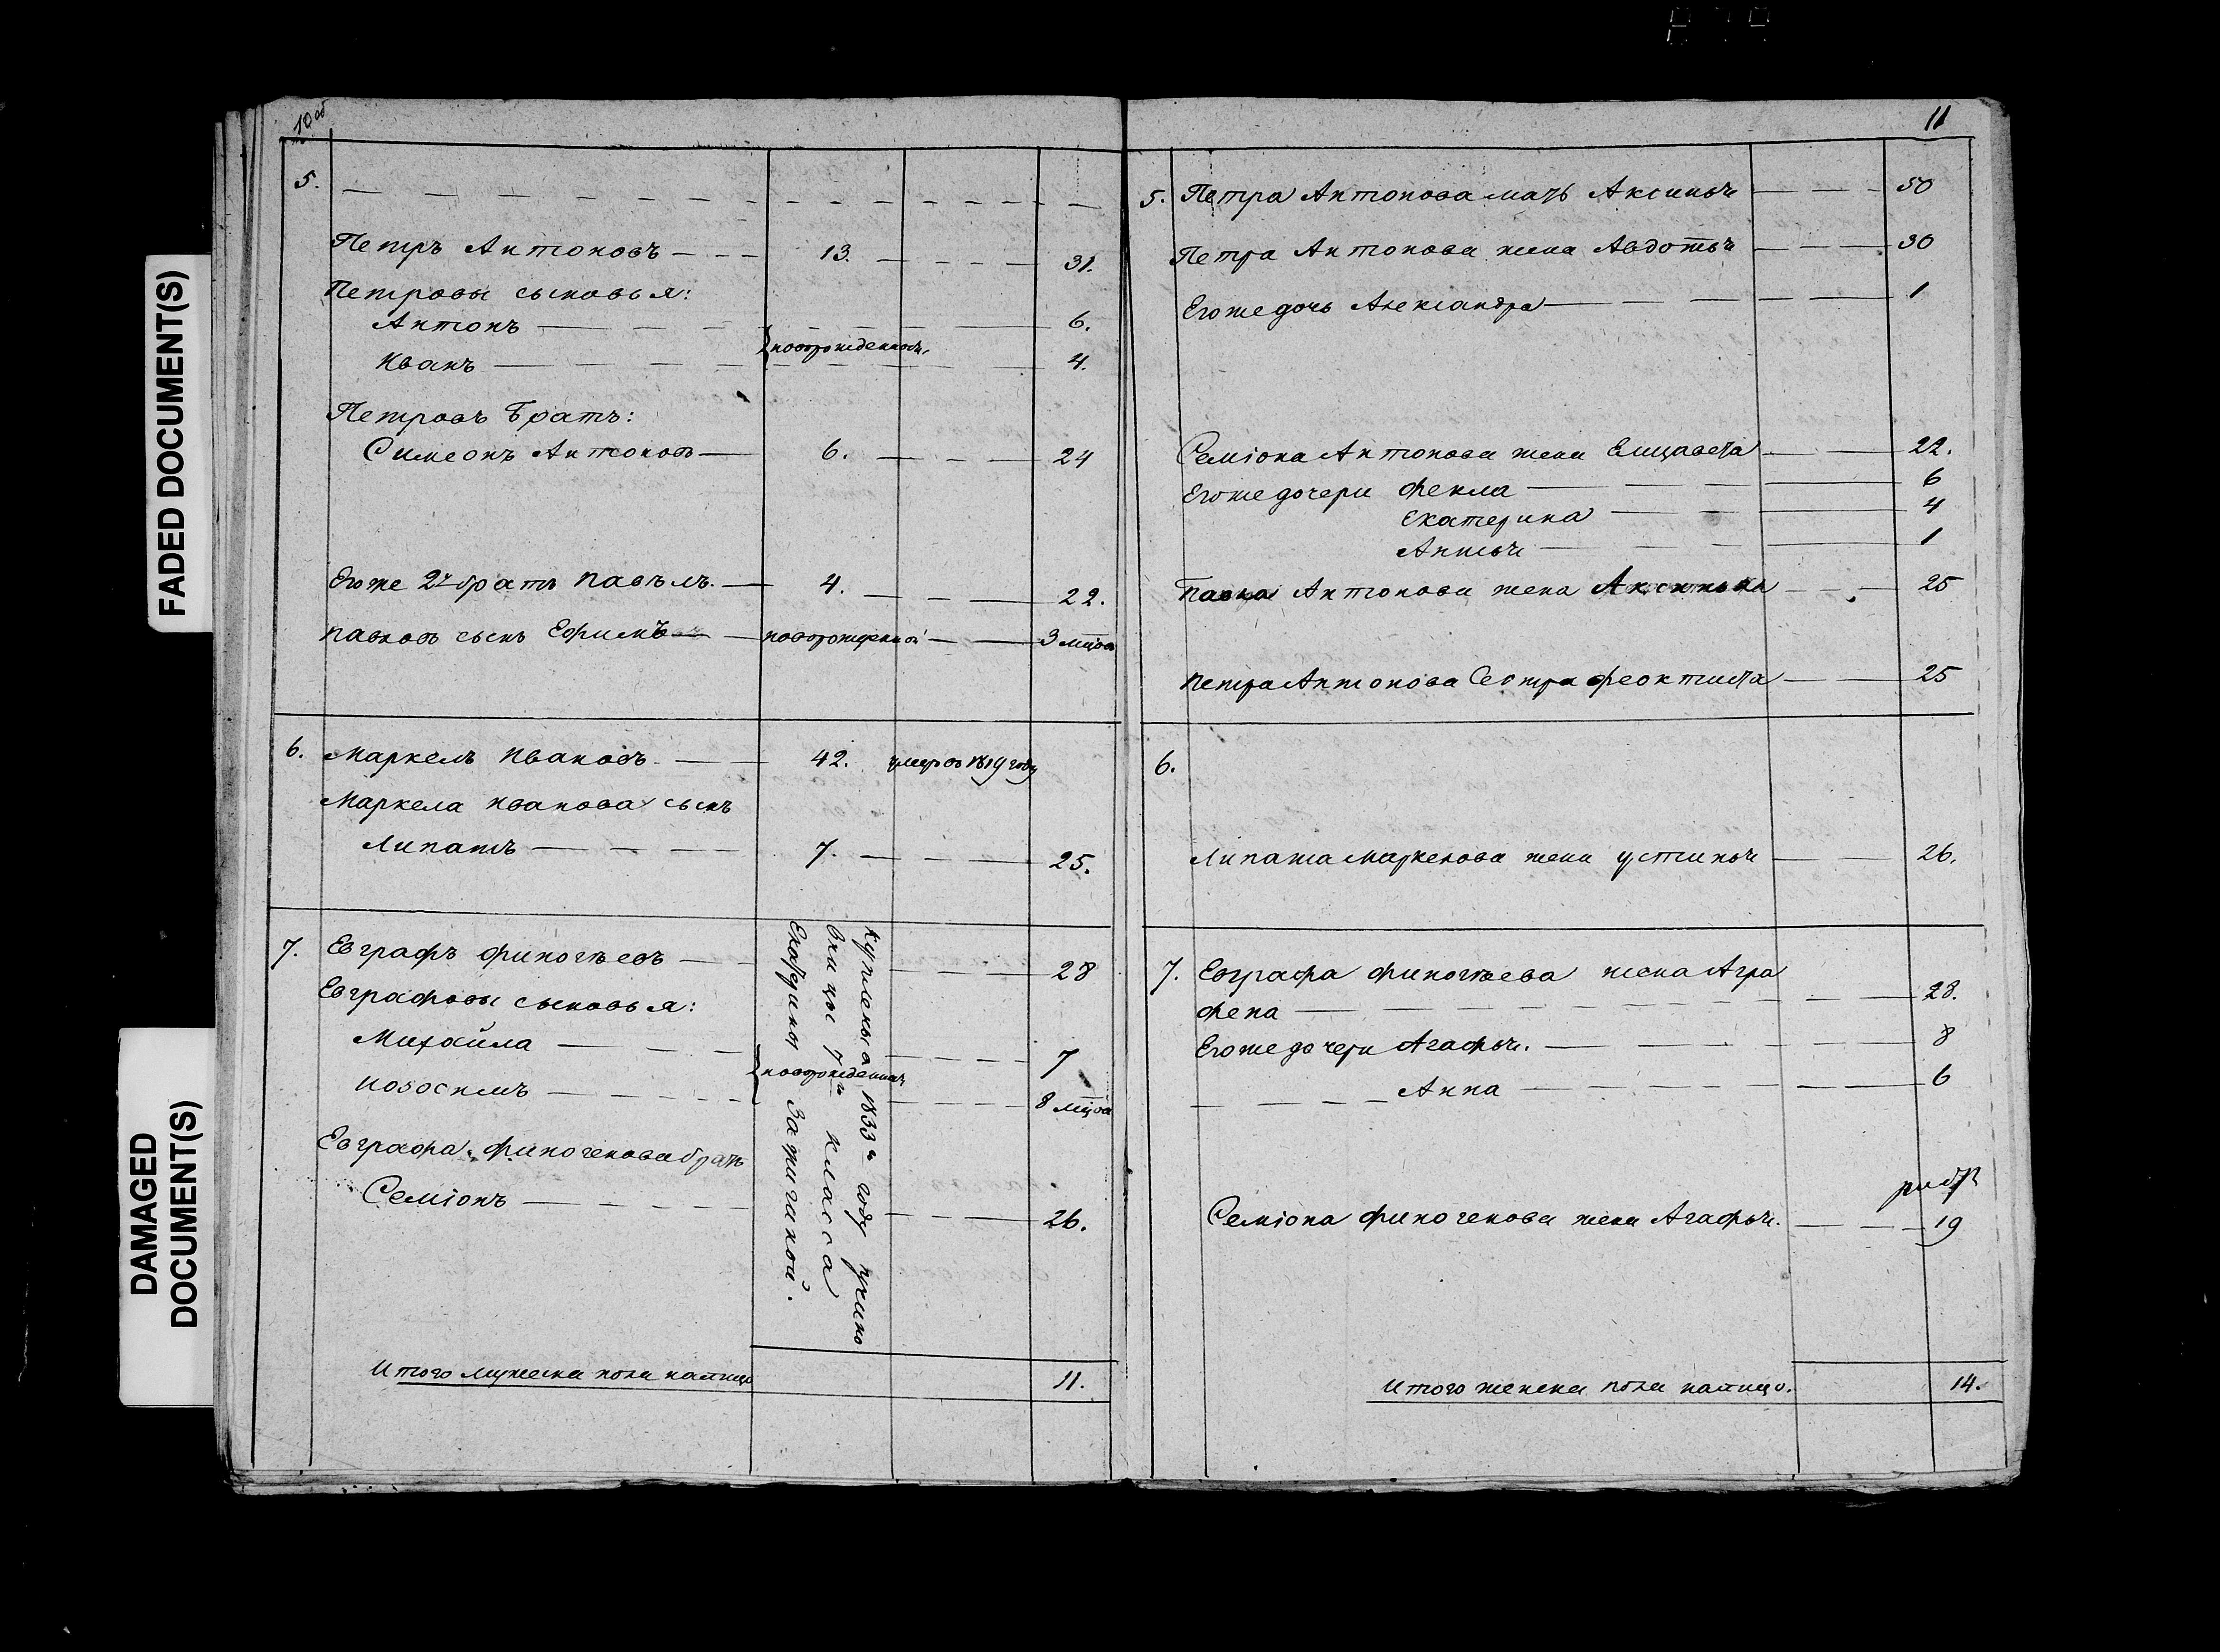 FADED DOCUMENT(S)
DAMAGED
DOCUMENT(S)
10 об
5.
Петръ Антоновъ 13. 31.
Петровы сыновья:
Антонъ 6.
новорожденныя
Иванъ 4.
Петровъ братъ:
Симеонъ Антоновъ 6. 24
Егоже 2й братъ Павълъ. 4. 22.
Павловъ сынъ Ефимъ новорожденной 3 мцов
6. Маркелъ Ивановъ 42. умеръ въ 1819 году
Маркела Иванова сынъ
Липатъ 7. 25.
7. Евграфъ Финогѣевъ 28
Евграфовы сыновья:
Михайла 7
новорожденныя
8 мцов
Евграфа Финогенова братъ
Семіонъ 26.
купленыя 1833го году у чино
вницы 7го класса
Екатерины
Итого мужеска пола налицо 11.
11
5. Петра Антонова мать Аксинья 50
Петра Антонова жена Авдотья 30
Егоже дочь Александра 1
Семіона Антонова жена Елицавета 22.
Егоже дочери Фекла 6
Екатерина 4
1
Павла Антонова жена Аксинья 25
Петра Антонова Сестра Феоктиста 25
6.
Липата Маркелова жена Устинья 26.
7. Евграфа Финогѣева жена Агра
фена 28.
Егоже дочери Агафья. 8
Анна 6
Семіона Финогенова жена Агафья. 19
Итого женска пола налицо. 14.